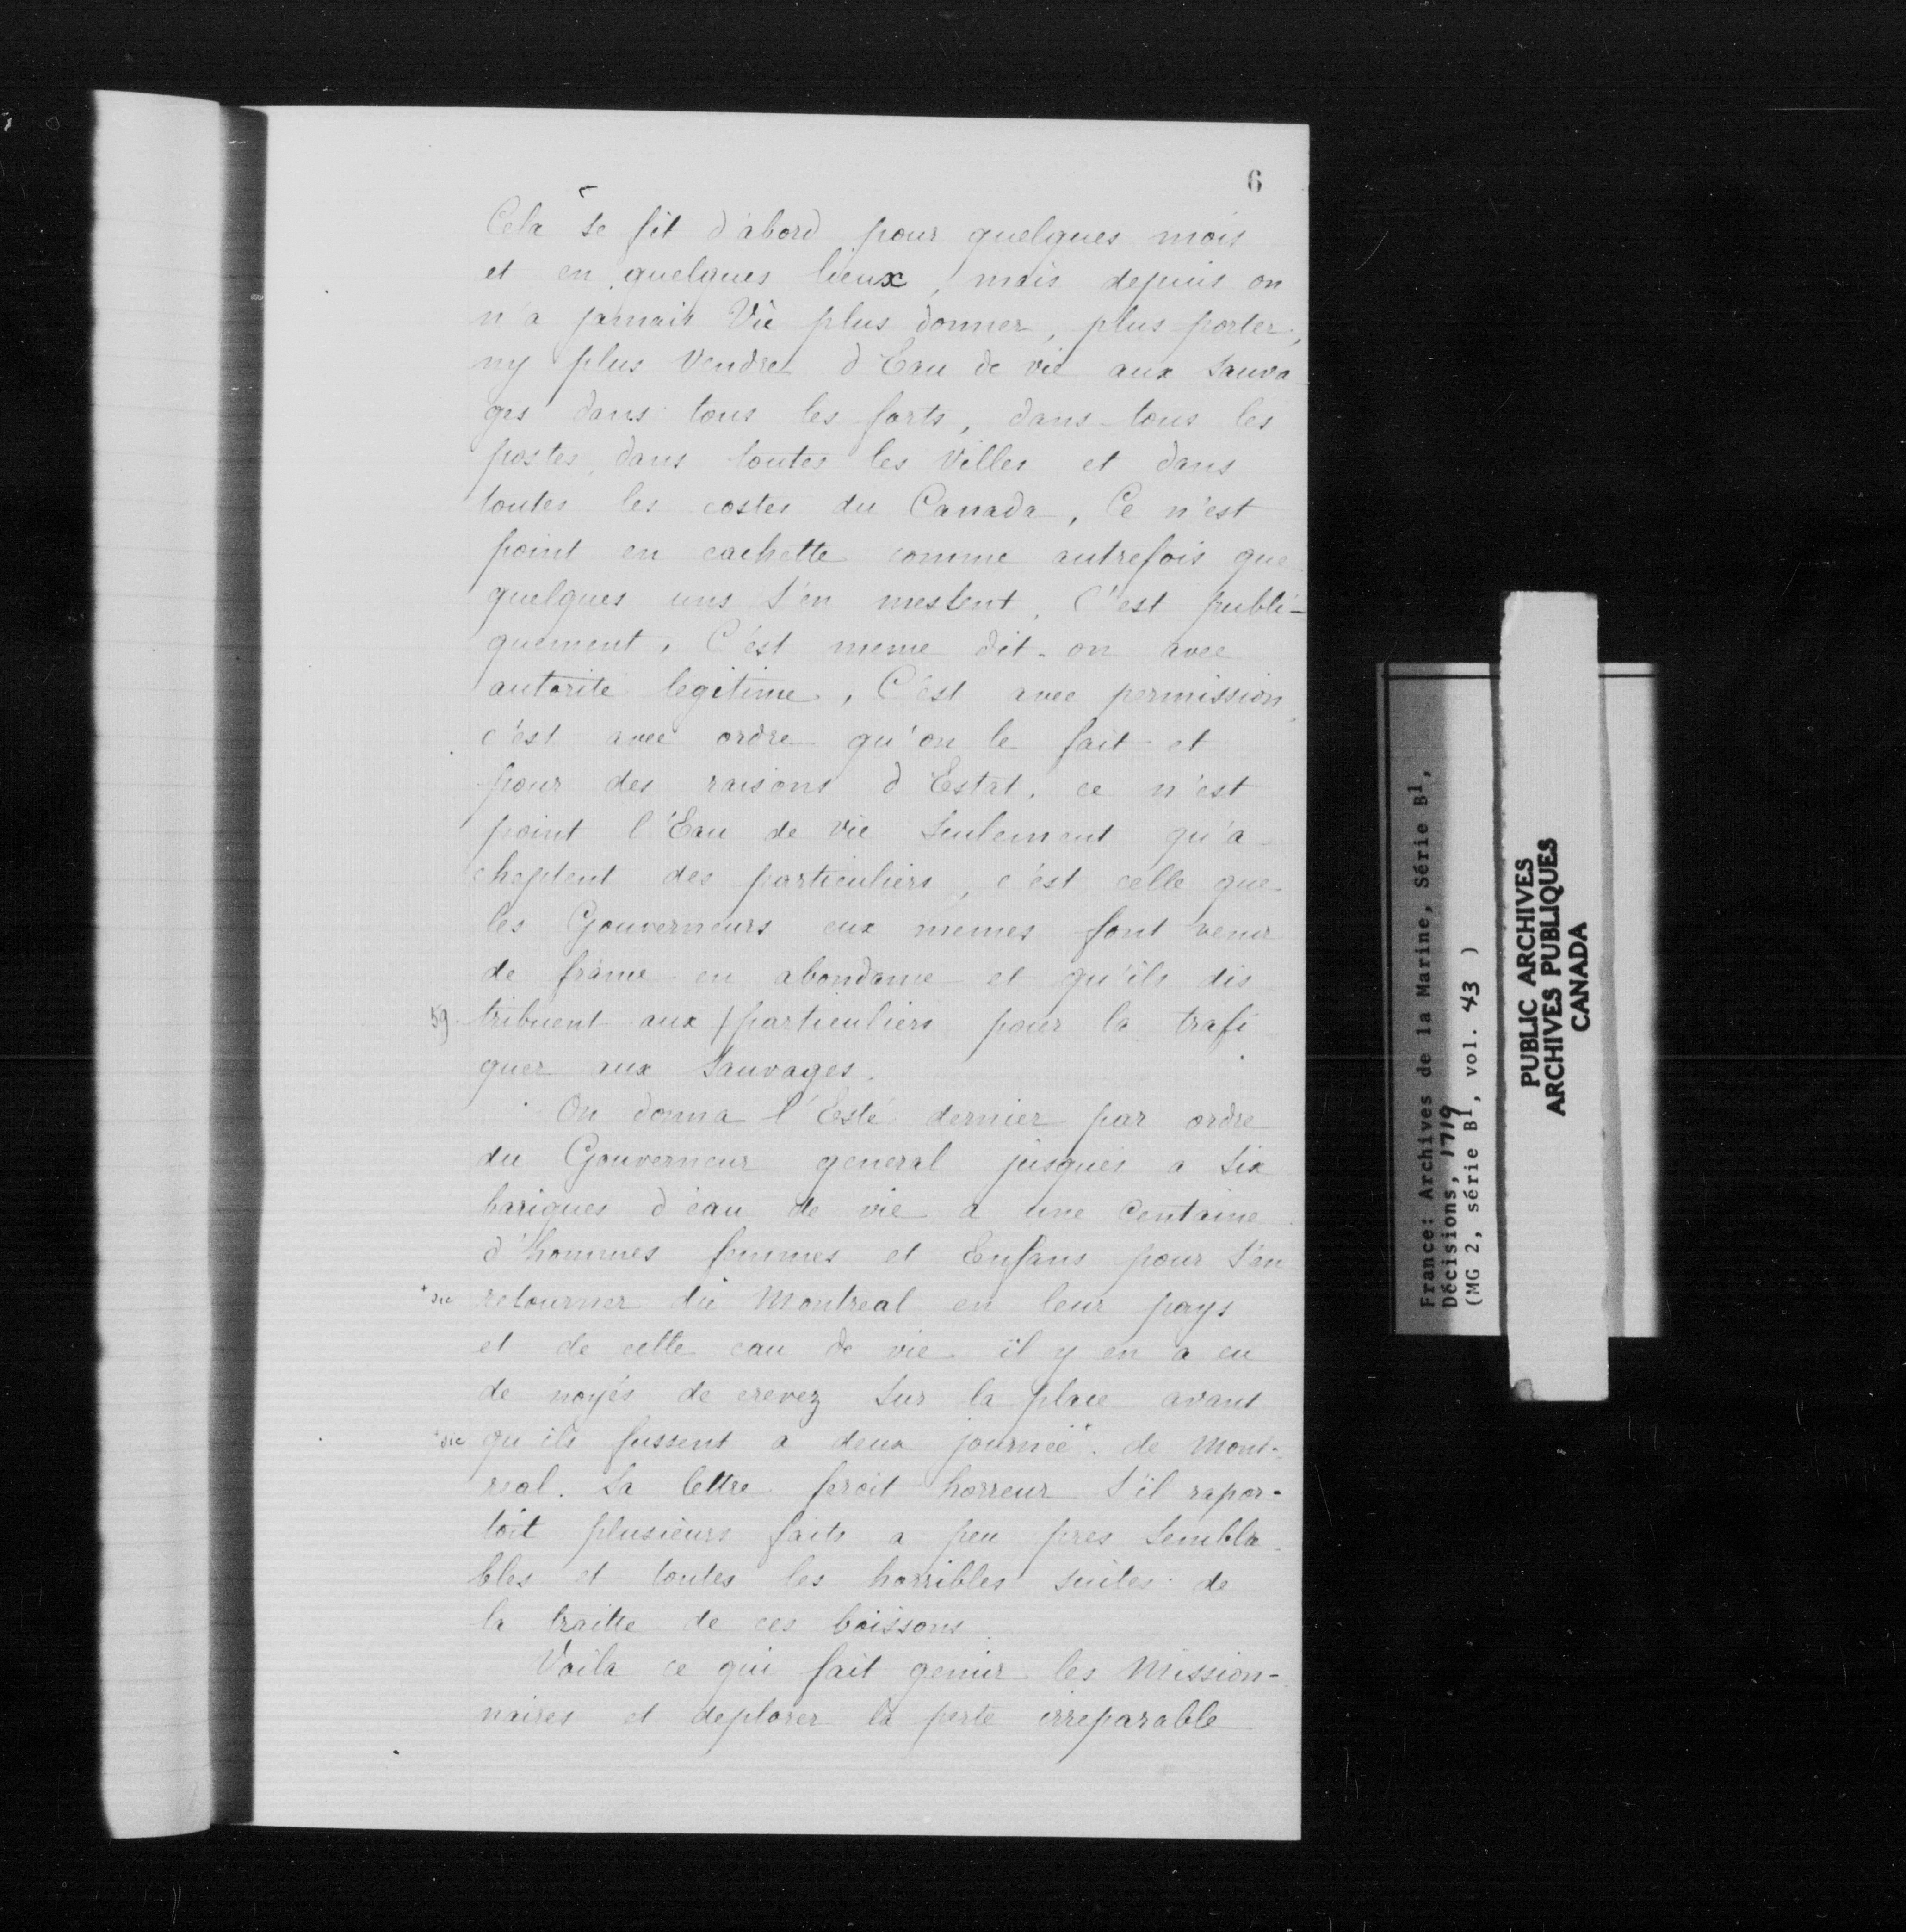 6
Cela se fit d'abord pour quelques mois
et en quelques lieux, mais depuis on
n'a jamais Vû plus donner, plus porter,
ny plus Vendre d'Eau de vie aux Sauva
ges dans tous les forts, dans tous les
postes, dans toutes les Villes et dans
toutes les costes du Canada, Ce n'est
point en cachette comme autrefois que
quelques uns s'en meslent, C'est publi-
quement, C'est meme dit-on avec
autorité legitime, C'est avec permission,
c'est avec ordre qu'on le fait et
pour des raisons d'Estat. ce n'est
point l'Eau de vie Seulement qu'a
cheptent des particuliers, c'est celle que
les Gouverneurs eux memes font venir
de france en abondance et qu'ils dis
59. tribuent aux / particuliers pour la trafi
quer aux Sauvages.
On donna l'Esté dernier par ordre
du Gouverneur general jusques a Six
bariques d'eau de vie a une Centaine
d'hommes femmes et Enfans pour s'en
+sic retourner du Montreal en leur pays
et de cette eau de vie il y en a eu
de noyés de crevez Sur la place avant
+sic qu'ils fussent a deux journée+ de Mont-
real. Sa lettre feroit horreur S'il rapor-
toit plusieurs faits a peu pres Sembla-
bles et toutes les horribles suites de
la traitte de ces boissons
Voila ce qui fait gemir les Mission-
naires et deplorer la perte irreparable
France: Archives de la Marine, Série B1,
Décisions, 1719
(MG 2, série B1, vol. 43 )
PUBLIC ARCHIVES
ARCHIVES PUBLIQUES
CANADA